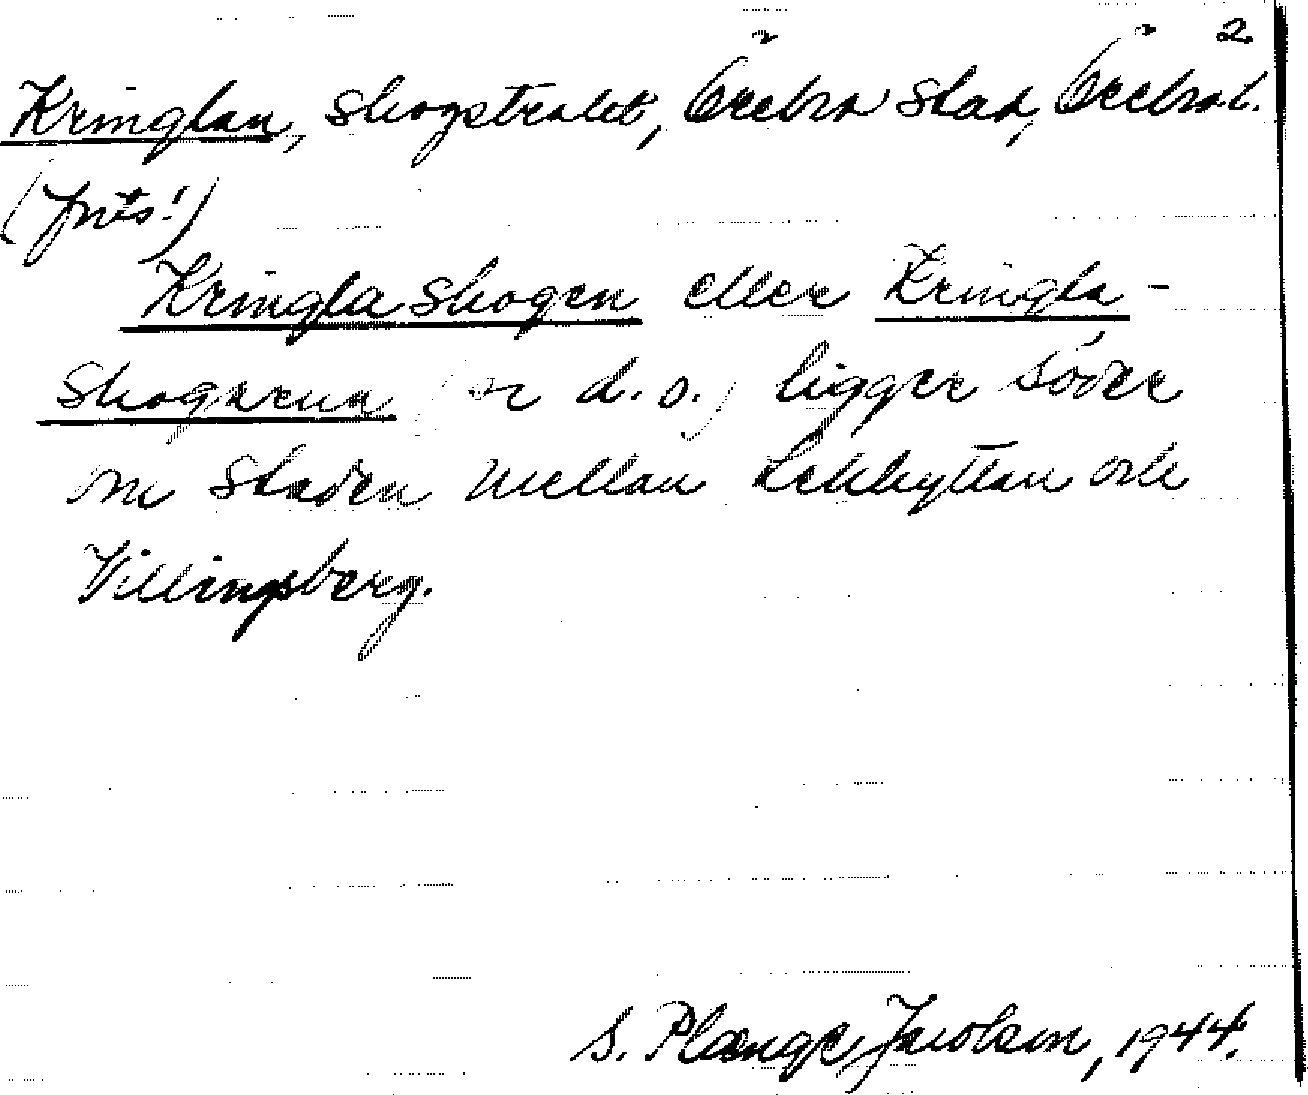 2.
Kringlan, skogstrakt, Örebro stad, Örebro l.
(frits!)
Kringlaskogen eller Kringla-
skogarna (or d. o.) ligger söder
om staden mellan Lekhyttan och
Villingsberg.
S. Plænge Jacobson, 1944.